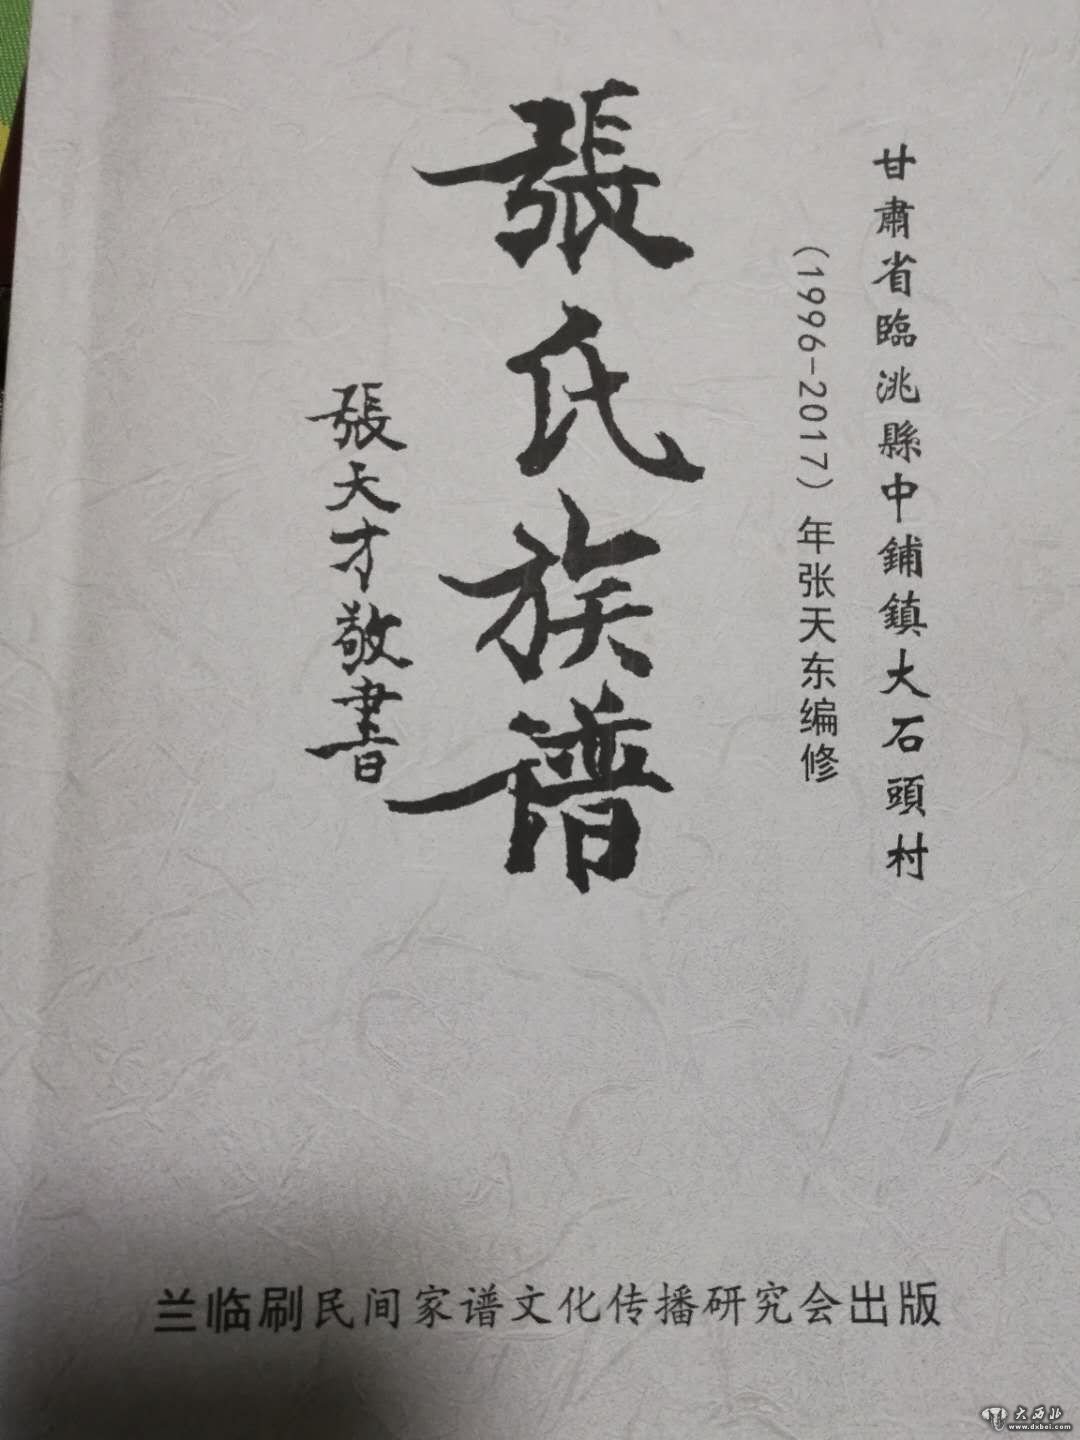 甘肅省臨洮縣中鋪鎮大石頭村
（1996-2017）年张天东编修
張氏族谱
張天才敬書
兰临刷民间家谱文化传播研究会出版
大西北
www.dxbei.com